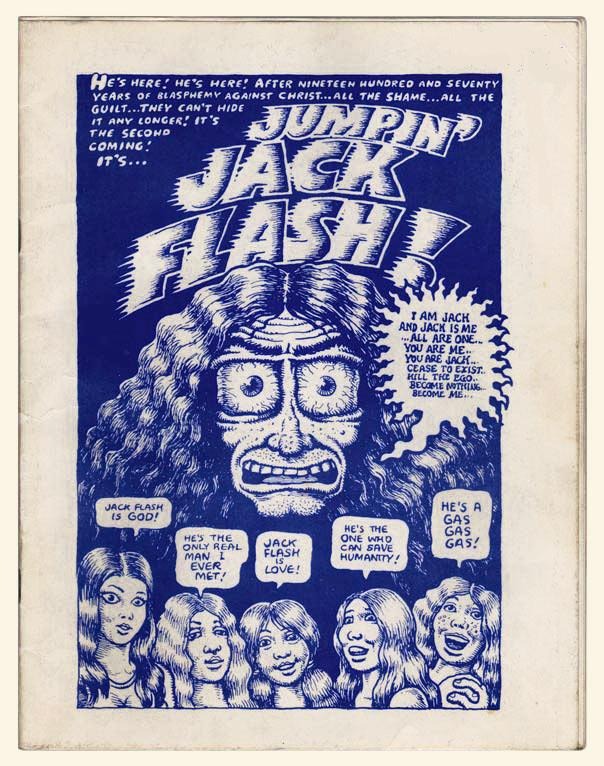 HE'S HERE! HE'S HERE! AFTER NINETEEN HUNDRED AND SEVENTY
YEARS OF BLASPHEMY AGAINST CHRIST...ALL THE SHAME...ALL THE
GUILT...THEY CAN'T HIDE
IT ANY LONGER! IT'S
THE SECOND
COMING!
IT'S...
JUMPIN'
JACK
FLASH!
I AM JACK
AND JACK IS ME
...ALL ARE ONE...
YOU ARE ME...
YOU ARE JACK...
CEASE TO EXIST..
KILL THE EGO..
BECOME NOTHING...
BECOME ME...
JACK FLASH
IS GOD!
HE'S THE
ONLY REAL
MAN I
EVER
MET!
JACK
FLASH
IS
LOVE!
HE'S THE
ONE WHO
CAN SAVE
HUMANITY!
HE'S A
GAS
GAS
GAS!